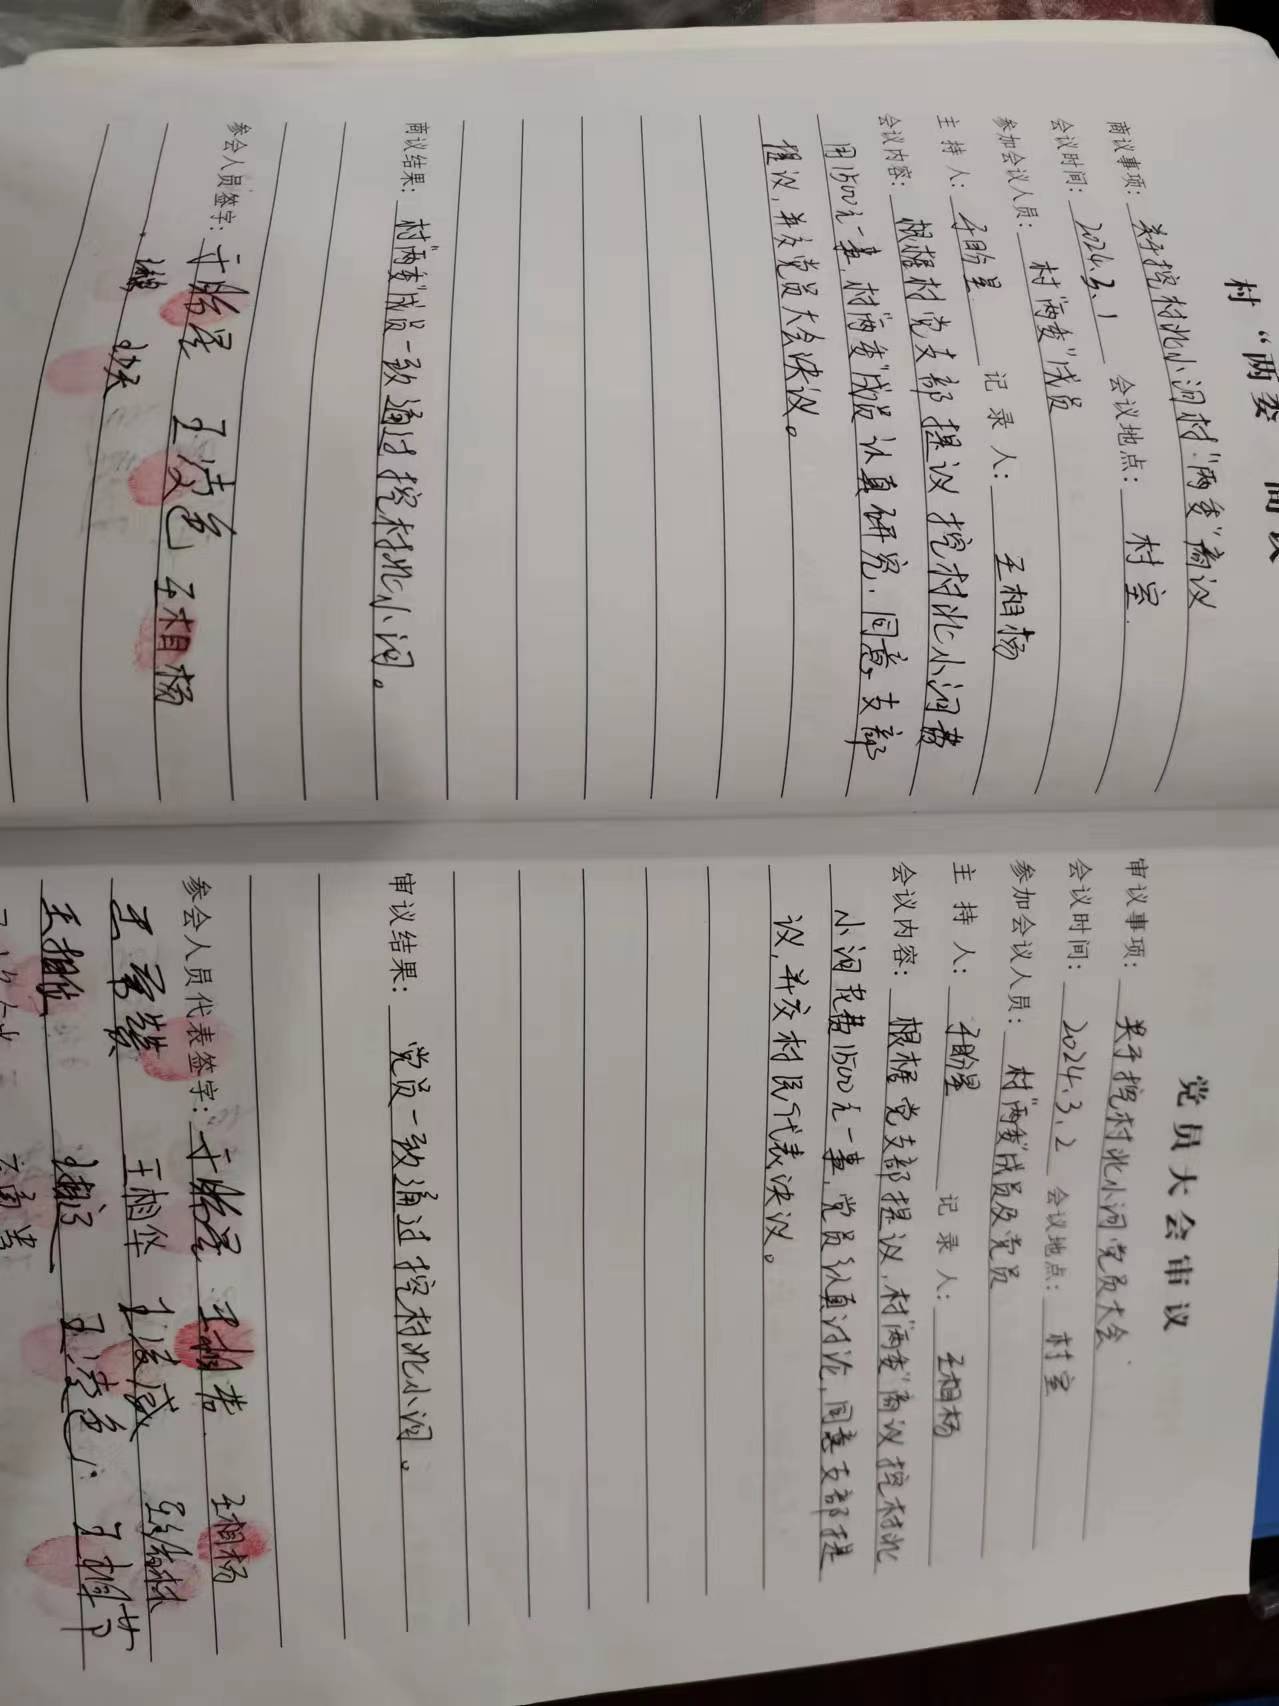 村“两委”商议
商议事项：关于挖村北小河村“两委”商议
会议时间：2024.3.1 会议地点：村室
参加会议人员：村“两委”成员
主持人：于盼星 记录人：王相杨
会议内容：根据村党支部提议挖村北小河费
用1500元一事，村“两委”成员认真研究，同意支部
提议，并交党员大会决议。
商议结果：村“两委”成员一致通过挖村北小河。
参会人员签字：于盼星 王凌色 王相杨
党员大会审议
审议事项：关于挖村北小河党员大会
会议时间：2024.3.2 会议地点：村室
参加会议人员：村“两委”成员及党员
主持人：于盼星 记录人：王相杨
会议内容：根据党支部提议，村“两委”商议挖村北
小河花费1500元一事，党员认真讨论，同意支部提
议，并交村民代表决议。
审议结果：党员一致通过挖村北小河。
参会人员代表签字：于盼星 王相 王相杨
王相华 王凌威
王凌色